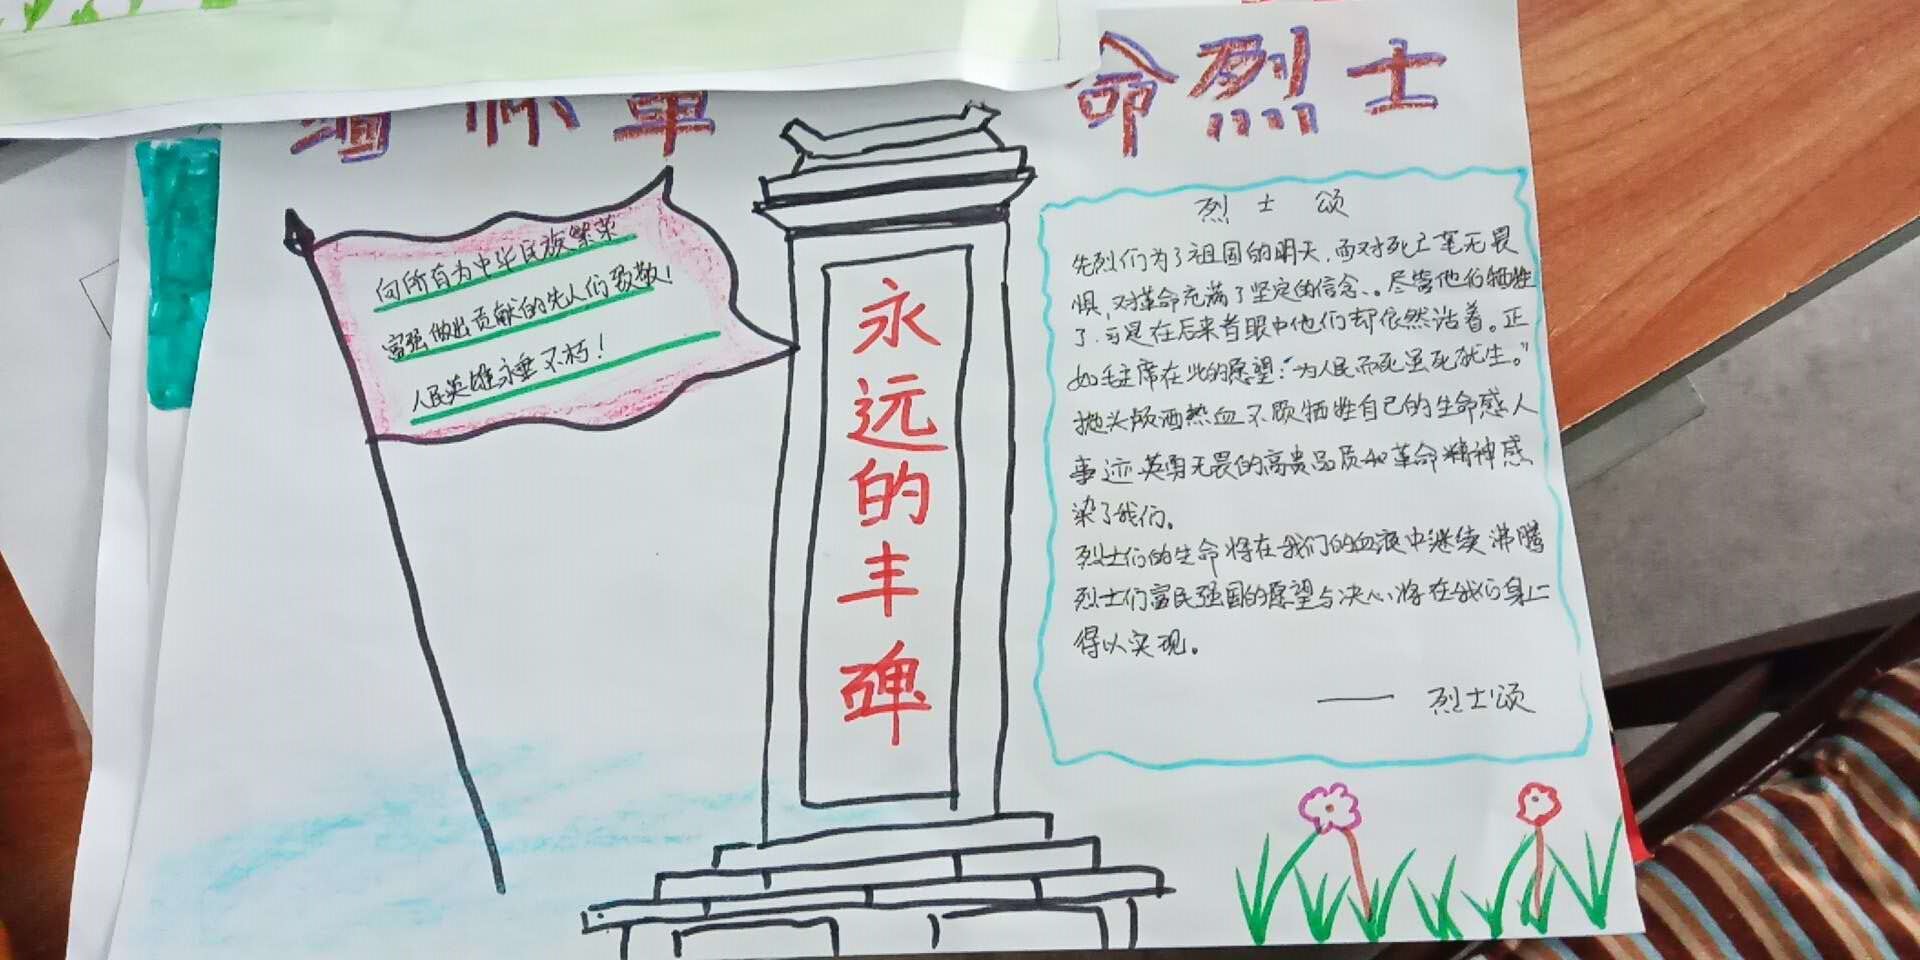 缅怀革命烈士
向所有为中华民族繁荣
富强做出贡献的先人们致敬！
人民英雄永垂不朽！
永远的丰碑
烈士颂
先烈们为了祖国的明天，面对死亡毫无畏
惧，对革命充满了坚定的信念、。尽管他们牺牲
了.可是在后来者眼中他们却依然活着。正
如毛主席在此的愿望：“为人民而死虽死犹生。”
抛头颅洒热血不顾牺牲自己的生命感人
事迹英勇无畏的高贵品质和革命精神感
染了我们。
烈士们的生命将在我们的血液中继续沸腾
烈士们富民强国的愿望与决心将在我们身上
得以实现。
——烈士颂